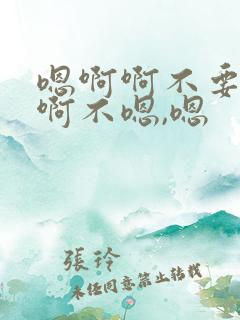 嗯啊啊不要
啊不嗯,嗯
張玲
未任同意禁止转载